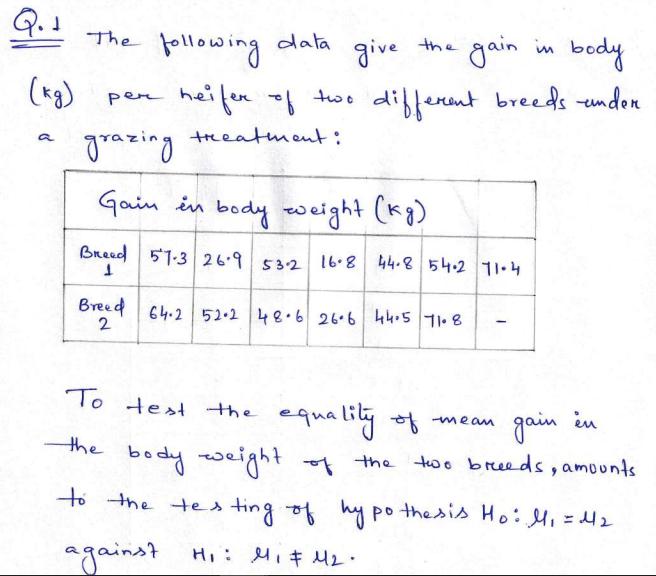 Q.1 The following data give the gain in body
(kg) per heifer of two different breeds under
a grazing treatment:
Gain in body weight (kg)
Breed 1 57.3 26.9 53.2 16.8 44.8 54.2 71.4
Breed 2 64.2 52.2 48.6 26.6 44.5 71.8 -
To test the equality of mean gain in
the body weight of the two breeds, amounts
to the testing of hypothesis H₀: μ₁ = μ₂
against H₁: μ₁ ≠ μ₂.